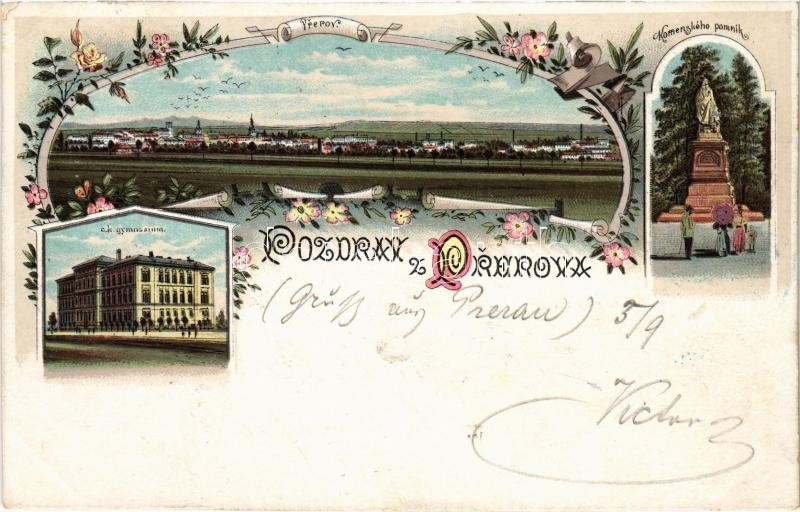 Přerov.
Komenského pomník
c.k. gymnasium.
Pozdrav z Přerova
(Gruß aus Prerau) 5/9
Victor